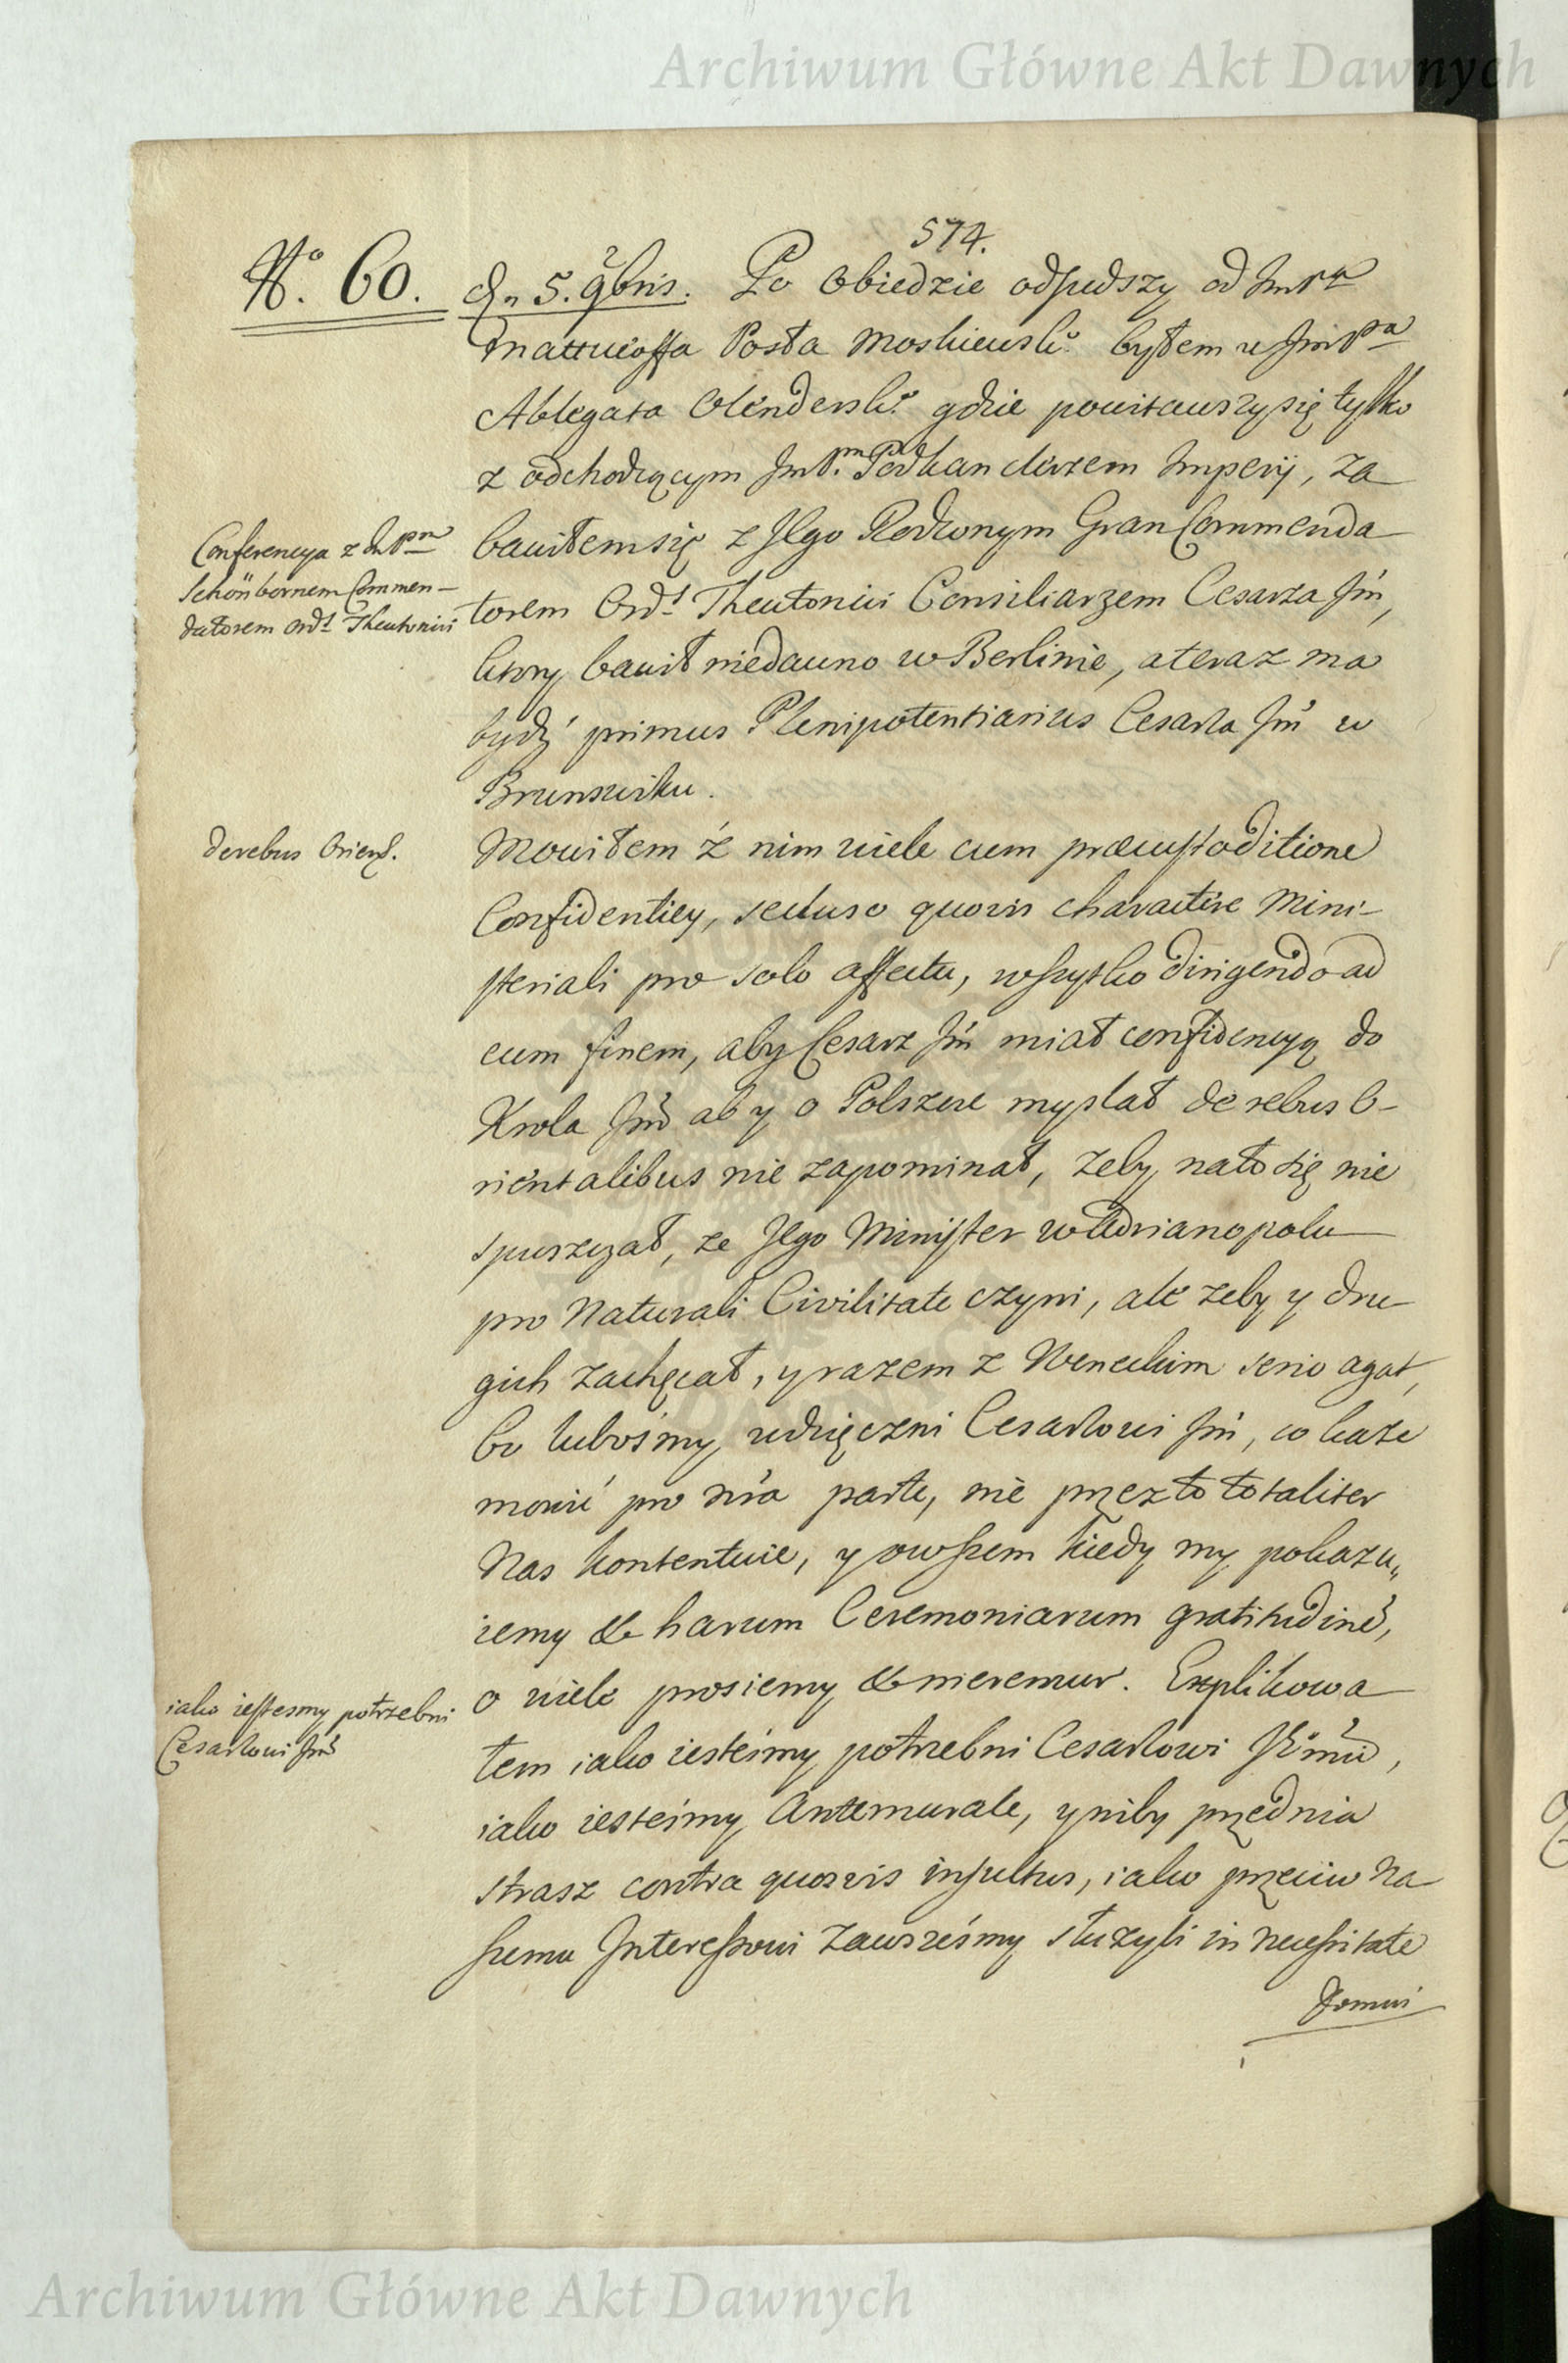 Archiwum Główne Akt Dawnych
574.
No. 60.
d. 5. 9bris. Po Obiedzie odszedszy od ImPa
Mattueoffa Posła Moskiewsko. byłem u JmPa
Ablegata Olendersko. gdzie powitawszy się tylko
z odchodzącym JmPm. Podkanclerzem Imperij, za
Conferencya z ImPm
Schönbornem Commen-
datorem Ords Theutonici
bawiłem się z Jego Rodzonym Gran Commenda
torem Ords Theutonici Consiliarzem Cesarza Jm,
ktory bawił niedawno w Berlinie, a teraz ma
bydź primus Plenipotentiarius Cesarza Jm w
Brunswiku.
de rebus Orient.
Mowiłem z nim wiele cum præcustoditione
Confidentiey, secluso quovis charactere Mini-
steriali pro solo affectu, wszystko dirigendo ad
eum finem, aby Cesarz Jm miał confidencyą do
Krola Jm aby o Polszcze myslał de rebus O-
rientalibus nie zapominał, zeby na to się nie
spuszczał, ze Jego Minister w Adrianopolu
pro Naturali Civilitate czyni, ale zeby y dru-
gich zachęcał, y razem z Weneckim serio agat,
bo lubośmy wdzięczni Cesarzowi Jm, co kaze
mowić pro nra parte, nie przez to totaliter
Nas kontentuie, y owszem kiedy my pokazu„
iemy & harum Ceremoniarum gratitudine,
iako iestesmy potrzebni
Cesarzowi Jm
o wiele prosiemy & meremur. Explikowa
łem iako iesteśmy potrzebni Cesarzowi JKmci,
iako iesteśmy Antemurale, y niby przednia
strasz contra quosvis insultus, iako przeciw na
szemu Interessowi zawsześmy służyli in necessitate
Domui
Archiwum Główne Akt Dawnych